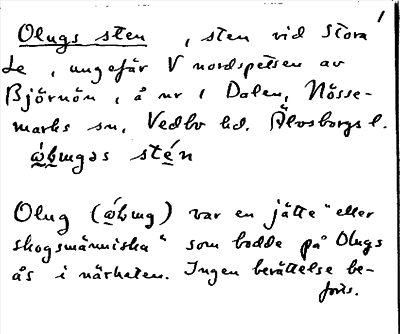 1
Olugs sten , sten vid Stora
Le , ungefär V nordspetsen av
Björnön, å nr 1 Dalen, Nösse-
marks sn, Vedbo hd. Älvsborgs l.
stén
Olug ( ) var en jätte "eller
skogsmänniska" som bodde på Olugs
ås i närheten. Ingen berättelse be-
fors.